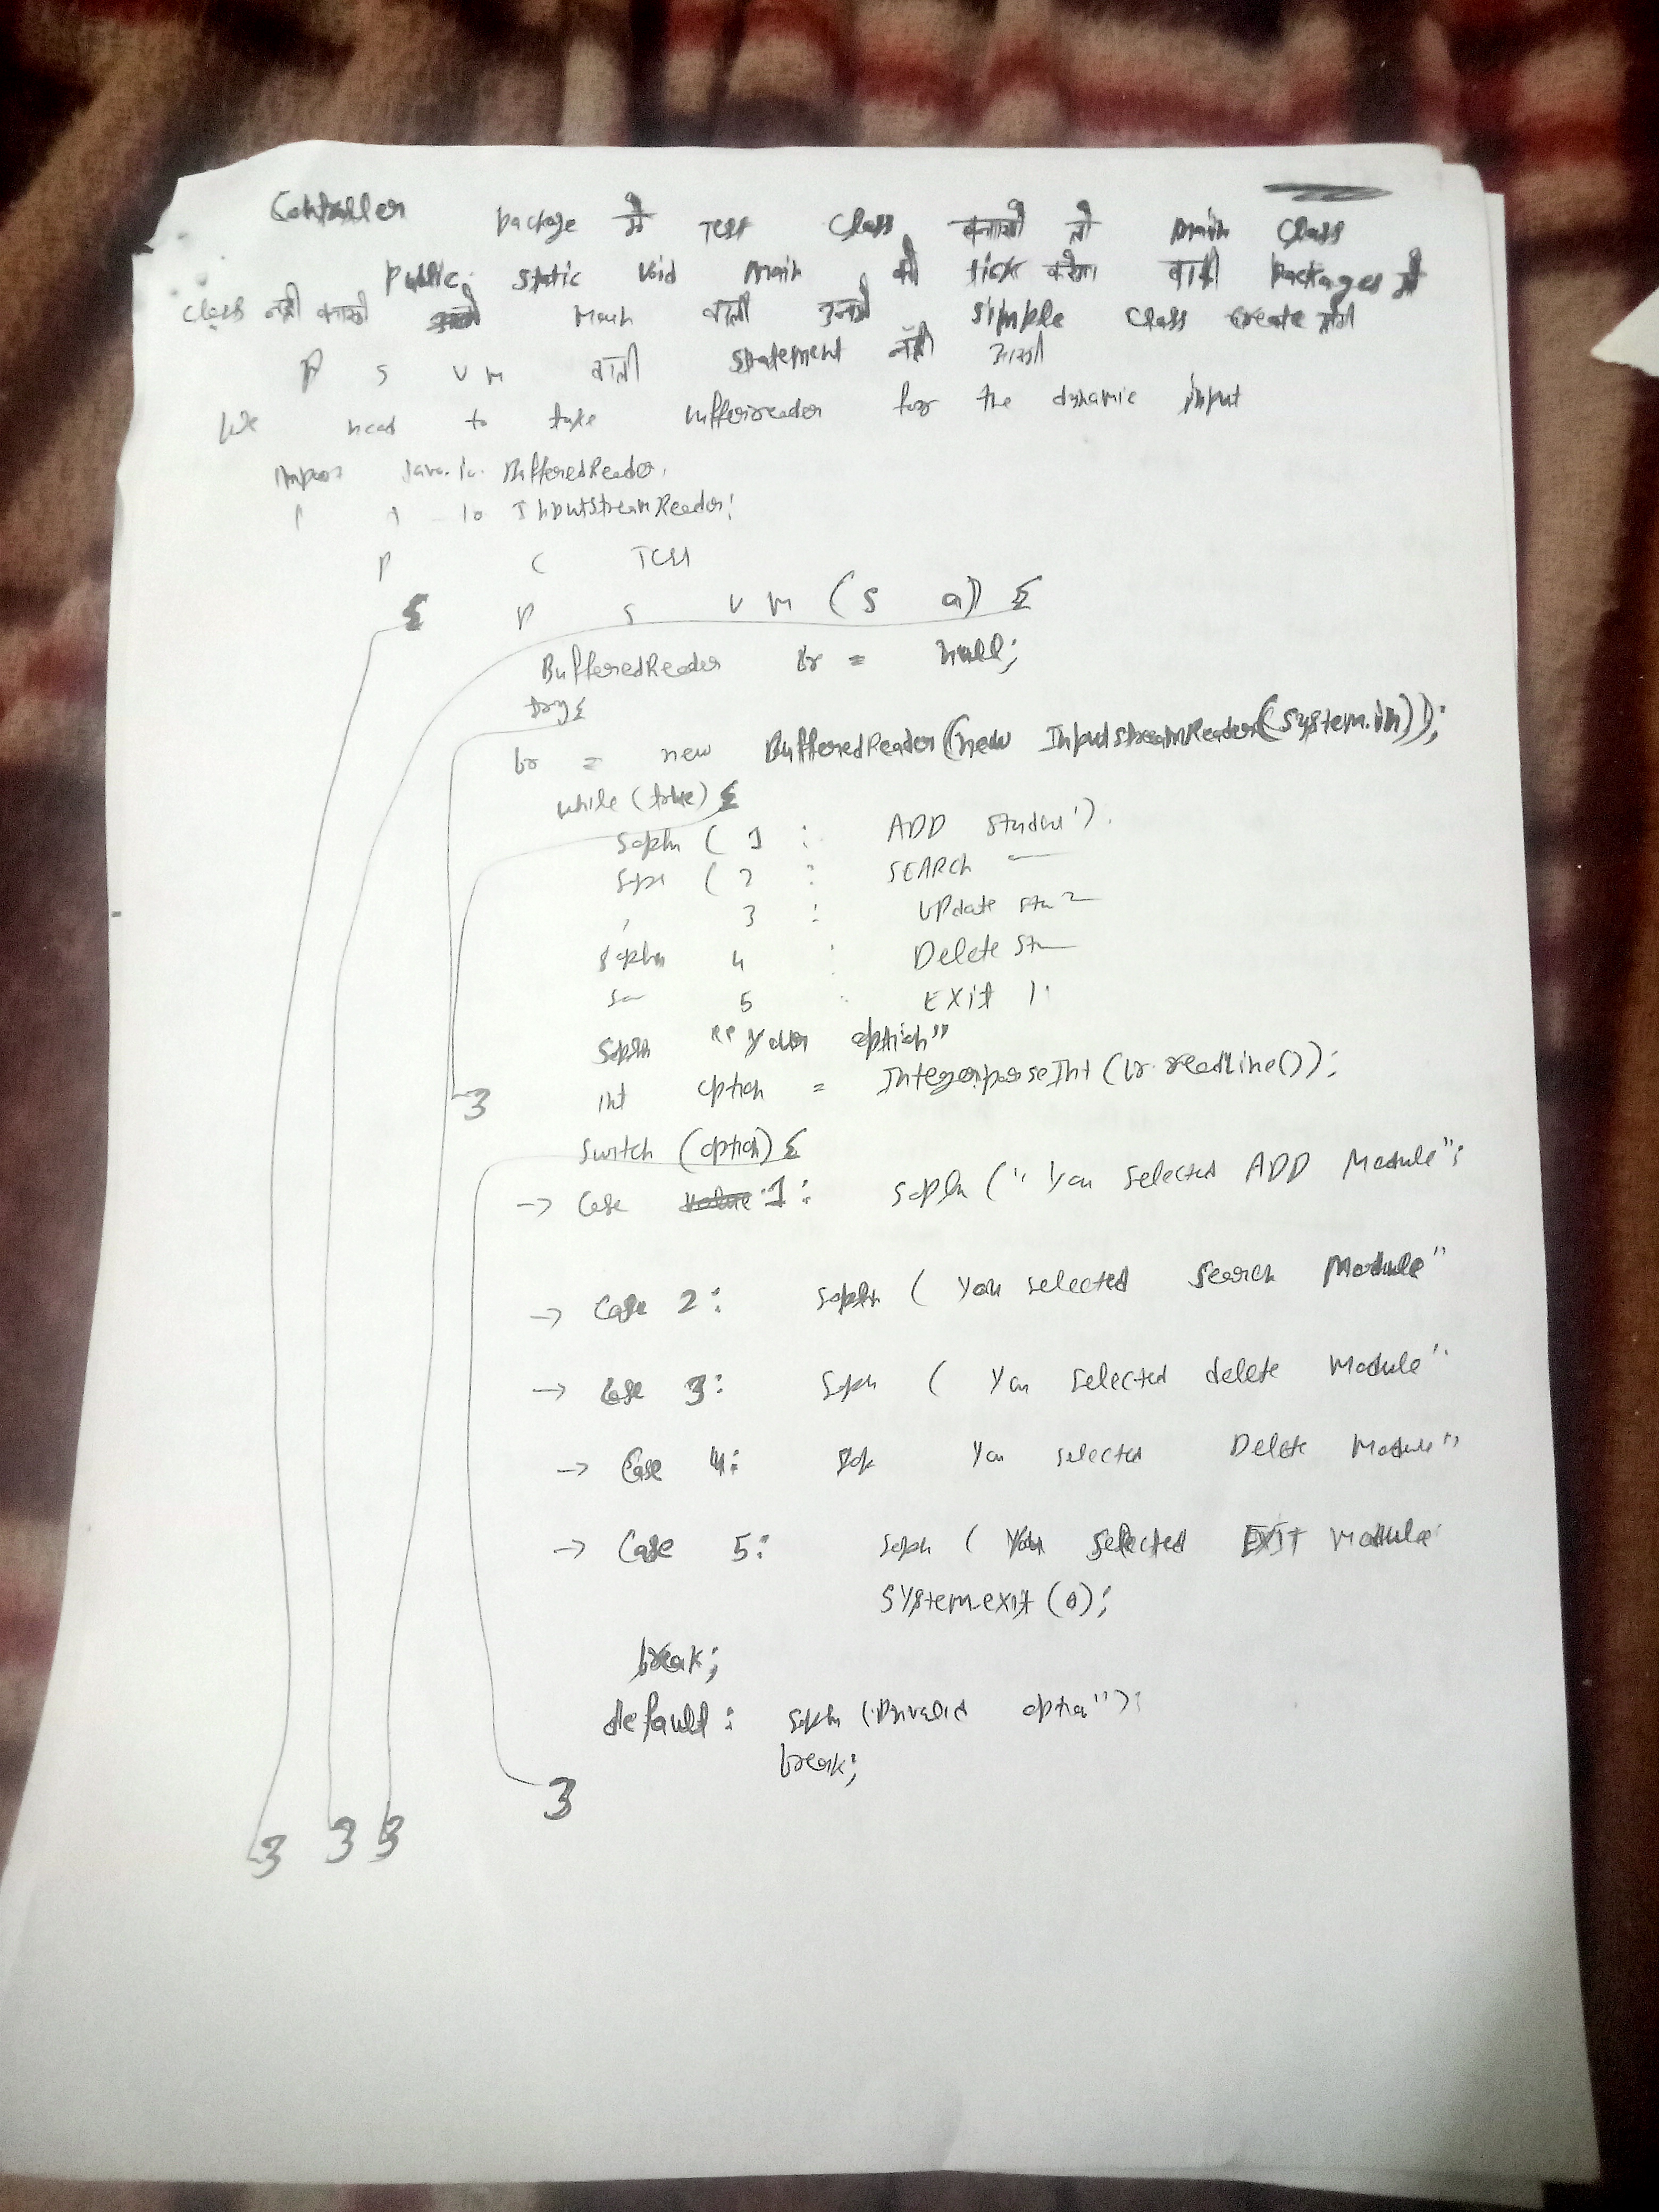 Controller package में Test class बनायी तो main class
public static void main को tick करेगा बाकी packages में
class नहीं बनायी main वाली उनमें simple class create करी
P S V M वाली statement नहीं आयी
We need to take bufferreader for the dynamic input
import java.io. BufferedReader,
io InputStreamReader;
P C Test
{ P S V M (S a)) {
BufferedReader br = null;
try {
br = new BufferedReader(new InputStreamReader(system.in));
while (true) {
sopln ( 1 : ADD student').
sopl ( 2 : SEARCH
3 : UPdate stu
sopln 4 : Delete st
5 : EXit ):
sopln "your option"
} int option = Integer.parseInt (br.readLine());
switch (option) {
→ Case 1: sopln (" You selected ADD Module";
→ Case 2: sopln ( You selected Search Module"
→ Case 3: Sopln ( You selected delete Module"
→ Case 4: Sop You selected Delete Module"
→ Case 5: sopln ( You selected EXIT Module
SYstem.exit (0);
break;
default : sopln ("Invalid optio");
break;
}
} } }